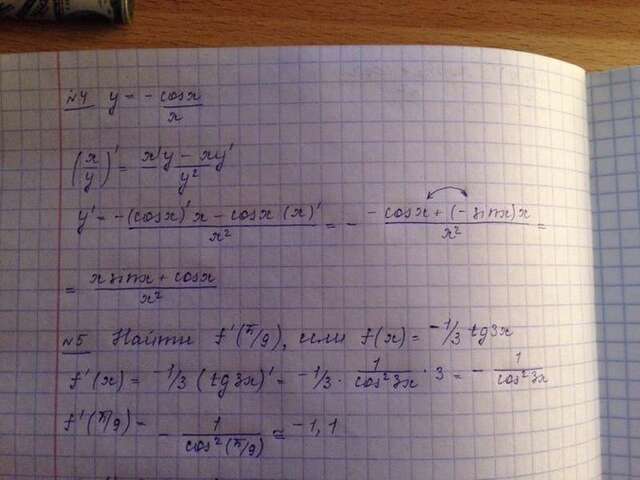 №4 y = - cosx/x
(x/y)' = (x'y - xy')/y²
y' = - ((cosx)'x - cosx (x)')/x² = - (-cosx + (-sinx)x)/x² =
= (x sinx + cosx)/x²
№5 Найти f'(π/9), если f(x) = -1/3 tg3x
f'(x) = -1/3 (tg3x)' = -1/3 · 1/cos²3x · 3 = - 1/cos²3x
f'(π/9) = - 1/cos²(π/9) ≈ -1,1